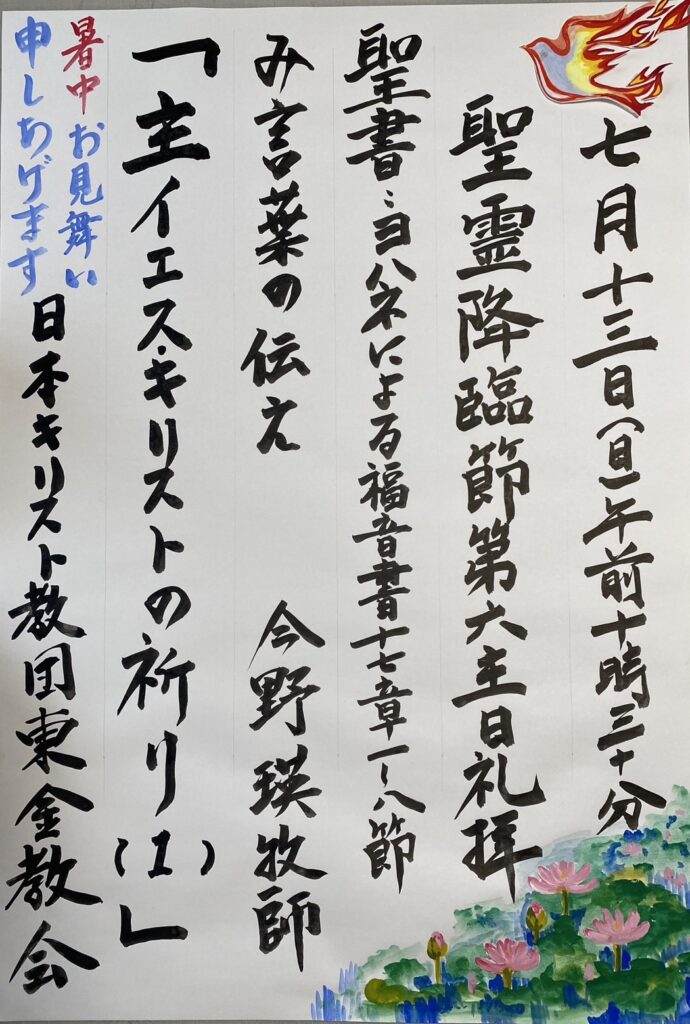 七月十三日(日)午前十時三十分
聖霊降臨節第六主日礼拝
聖書:ヨハネによる福音書十七章一〜八節
み言葉の伝え 今野瑛牧師
「主イエス・キリストの祈り(1)」
暑中お見舞い
申しあげます
日本キリスト教団東金教会